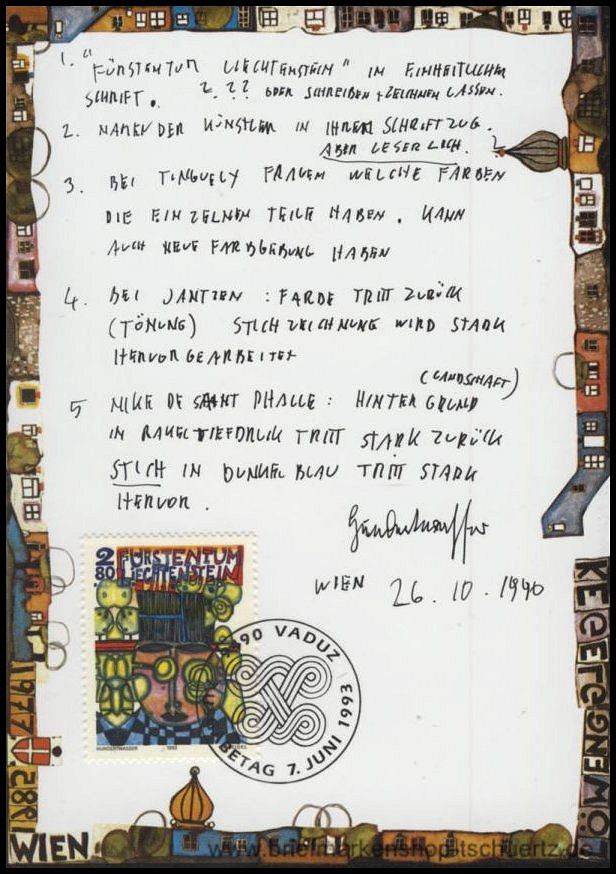 1. "FÜRSTENTUM LIECHTENSTEIN" IN EINHEITLICHER
SCHRIFT. ? ? ? ODER SCHREIBEN + ZEICHNEN LASSEN.
2. NAMEN DER KÜNSTLER IN IHREM SCHRIFTZUG.
ABER LESERLICH.
3. BEI TINGUELY FRAGEN WELCHE FARBEN
DIE EINZELNEN TEILE HABEN. KANN
AUCH NEUE FARBGEBUNG HABEN
4. BEI JANTZEN : FARBE TRITT ZURÜCK
(TÖNUNG) STICHZEICHNUNG WIRD STARK
HERVORGEARBEITET
(LANDSCHAFT)
5 NIKE DE SAINT PHALLE : HINTERGRUND
IN RAKELTIEFDRUCK TRITT STARK ZURÜCK
STICH IN DUNKELBLAU TRITT STARK
HERVOR.
Hundertwasser
WIEN 26.10.1990
280 FÜRSTENTUM
LIECHTENSTEIN
HUNDERTWASSER 1993
490 VADUZ
BETAG 7. JUNI 1993
1977
1982
WIEN
www.briefmarkenshop-tschuertz.de